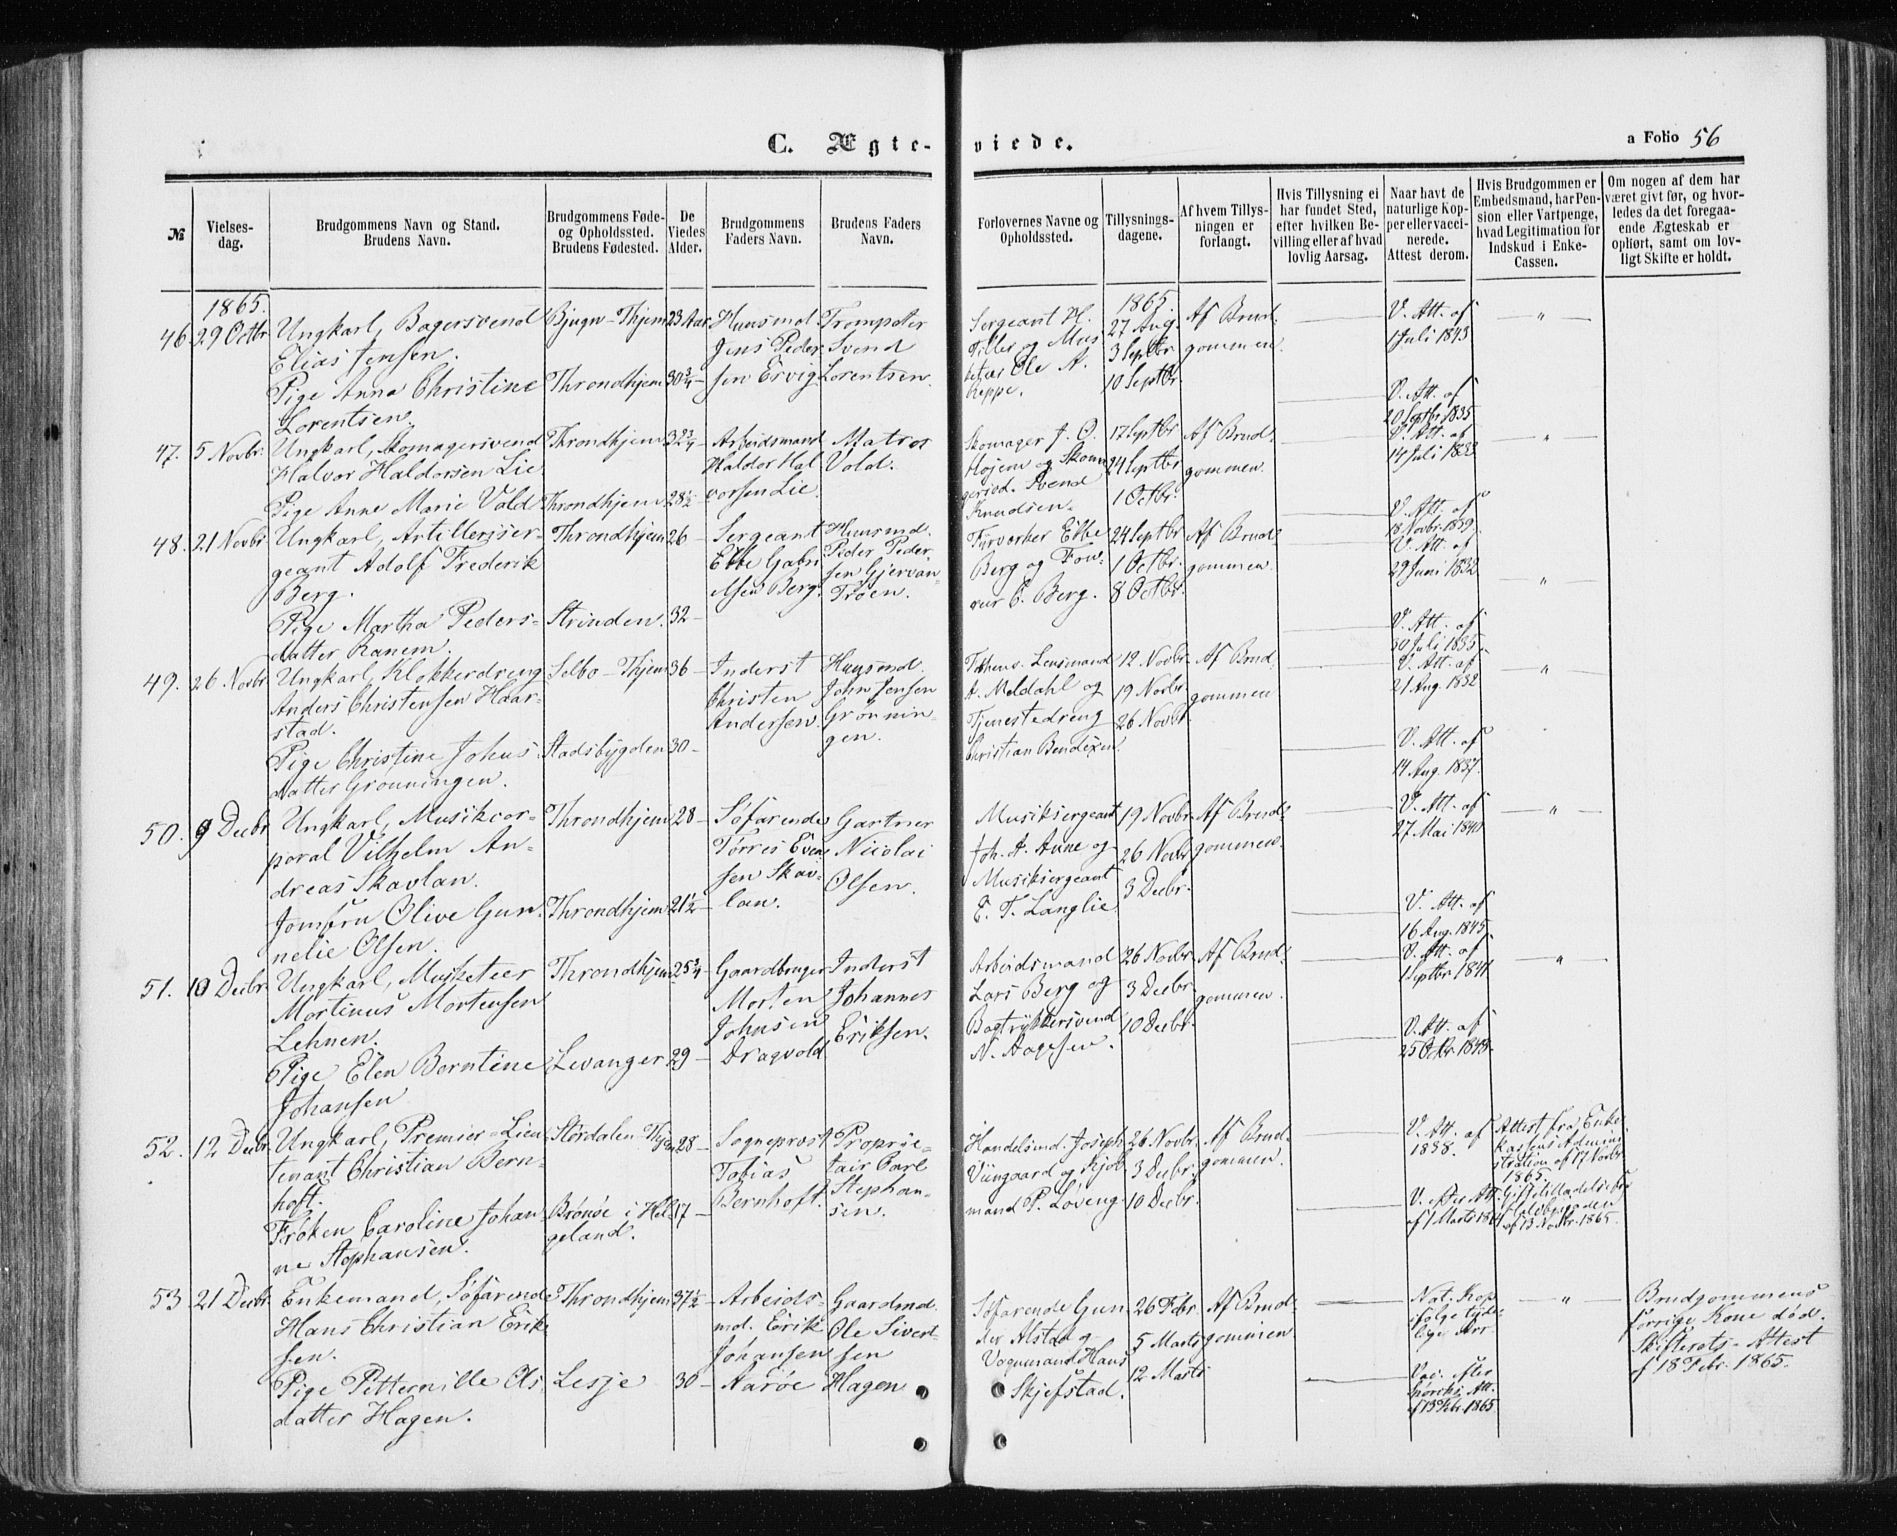 C. Ægte-
viede.
a Folio 56
№
Vielses-
dag.
Brudgommens Navn og Stand.
Brudens Navn.
Brudgommens Føde-
og Opholdssted.
Brudens Fødested.
De
Viedes
Alder.
Brudgommens
Faders Navn.
Brudens Faders
Navn.
Forlovernes Navne og
Opholdssted.
Tillysnings-
dagene.
Af hvem Tillys-
ningen er
forlangt.
Hvis Tillysning ei
har fundet Sted,
efter hvilken Be-
villing eller af hvad
lovlig Aarsag.
Naar havt de
naturlige Kop-
per eller vacci-
nerede.
Attest derom.
Hvis Brudgommen er
Embedsmand, har Pen-
sion eller Vartpenge,
hvad Legitimation for
Indskud i Enke-
Cassen.
Om nogen af dem har
været givt før, og hvor-
ledes da det foregaa-
ende Ægteskab er
ophørt, samt om lov-
ligt Skifte er holdt.
1865.
46
29 Octbr
Ungkarl, Bagersvend
Elias Jensen.
Pige Anna Christine
Lorentsen.
Bjugn - Thjem
Throndhjem
23 Aar
30 3/4 -
Huusmd.
Jens Peder
sen Ervig
Trompeter
Svend
Lorentsen.
Sergeant H.
Tiller og Mus
keteer Ole A.
Reppe.
1865.
27 Aug.
3 Septbr
10 Septbr.
Af Brud-
gommen.
V. Att. af
1 Juli 1843
V. Att. af
20 Septbr. 1835
"
47.
5 Novbr.
Ungkarl, Skomagersvend
Halvor Haldorsen Lie
Pige Anne Marie Vold
Throndhjem
Throndhjem
32 3/4 -
28 1/2
Arbeidsmand
Haldor Hal
vorsen Lie.
Matros
Vold.
Skomager J. O.
Højem og Skom
Svend
Knudsen.
17 Septbr
24 Septbr.
1 Octbr.
Af Brud-
gommen.
V. Att. af
14 Juli 1833
V. Att. af
18 Novbr. 1839.
"
48.
21 Novbr
Ungkarl, Artilleriser-
geant Adolf Frederik
Berg.
Pige Martha Peders-
datter Ranem.
Throndhjem
Strinden.
26 -
32 -
Sergeant
Ebbe Gabri
elsen Berg.
Huusmd.
Peder Peder-
sen Gjervan-
Trøen.
Fyrvorker Ebbe
Berg og
C. Berg.
24 Septbr
1 Octbr.
8 Octbr.
Af Brud-
gommen.
V. Att. af
29 Juni 1832
V. Att. af
30 Juli 1835
"
49.
26 Novbr
Ungkarl, Klokkerdreng
Anders Christensen Haar-
stad.
Pige Christine Johns
datter Grønningen.
Selbo - Thjem
Stadsbygden
36 -
30 -
Inderst
Christen
Andersen.
Huusmd.
John Jensen
Grønnin-
gen.
Lensmand
A. Meldahl og
Tjenestedreng
Christian Bendixen
12 Novbr.
19 Novbr.
26 Novbr.
Af Brud-
gommen
V. Att. af
21 Aug. 1832
V. Att. af
14 Aug. 1837.
"
50.
9 Decbr
Ungkarl, Musikcor-
poral Vilhelm An-
dreas Skavlan.
Jomfru Olive Gun-
nelie Olsen.
Throndhjem
Throndhjem
28 -
21 1/2 -
Søfarende
Tørres Even
sen Skav-
lan.
Gartner
Nicolai
Olsen.
Musiksergeant
Joh. A. Aune og
Musiksergeant
E. T. Langlie
19 Novbr.
26 Novbr
3 Decbr.
Af Brud-
gommen.
V. Att. af
27 Mai 1840
V. Att. af
16 Aug. 1845.
"
51.
10 Decbr
Ungkarl, Musketeer
Mortinus Mortensen
Lehnen.
Pige Elen Berntine
Johansen
Throndhjem
Levanger
25 3/4 -
29 -
Gaardbruger
Morten
Johnsen
Dragvold
Inderst
Johannes
Eriksen.
Arbeidsmand
Lars Berg og
Bogtrykkersvend
N. Aagesen.
26 Novbr.
3 Decbr.
10 Decbr.
Af Brud-
gommen.
V. Att. af
1 Septbr. 1841
V. Att. af
25 Octbr. 1848.
"
52.
12 Decbr.
Ungkarl, Premier-Lieu
tenant Christian Bern-
hoft.
Frøken Caroline Johan
ne Stephansen.
Størdalen Thjem
Brønøe i Hel-
geland.
28 -
17 -
Sogneprost
Tobias
Bernhoft.
Proprie-
tair Carl
Stephan-
sen.
Handelsmd. Joseph
Viingaard og Kjøb
mand P. Løveng
26 Novbr.
3 Decbr.
10 Decbr.
Af Brud-
gommen.
V. Att. af
1838.
V. efter Att.
af 7 Marts
Attest fra Enke-
kassens Admini
stration af 17 Novbr
1865.
Giftetilladelse
af 13 Novbr. 1865.
53
21 Decbr.
Enkemand, Søfarende
Hans Christian Erik-
sen.
Pige Petternille Ols
datter Hagen.
Throndhjem
Lesje
37 1/2 -
30 -
Arbeids-
md. Eirik
Johansen
Aarøe
Gaardmd.
Ole Sivert-
sen
Hagen
Søfarende Gun
der Alstad og
Vognmand Hans
Skjefstad.
26 Febr
5 Marts
12 Marts
Af Brud-
gommen
Nat. Kop
ifølge tyde-
lige Arr
Vac. efter
Att.
af 13 Febr. 1865
"
Brudgommens
forrige Kone død.
Skifterets-Attest
af 18 Febr. 1865.